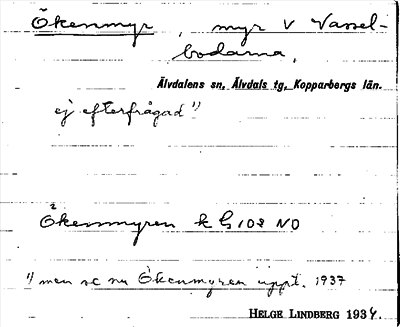 Ökenmyr, myr V Vassel-
bodarna,
Älvdalens sn, Älvdals tg, Kopparbergs län.
ej efterfrågad 1)
Ökenmyren k G 108 NO
1) men se nu Ökenmyren uppt. 1937
HELGE LINDBERG 1934.